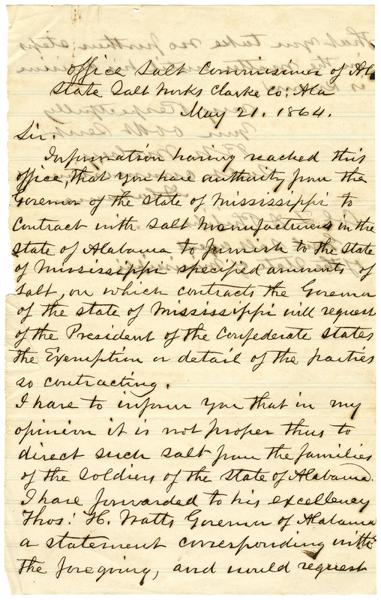 Office Salt Commissioner of Al
State Salt Works Clarke Co; Ala
May 21. 1864.
Sir.
Information having reached this
office, that you have authority from the
Governor of the State of Mississippi to
Contract with Salt Manufacturers in the
State of Alabama to furnish to the State
of Mississippi specified amounts of
Salt, on which contracts the Governor
of the State of Mississippi will request
of the President of the Confederate States
the Exemption or detail of the parties
so contracting.
I have to inform you that in my
opinion it is not proper thus to
direct such salt from the families
of the Soldiers of the State of Alabama.
I have forwarded to his excellency
Thos: H. Watts Governor of Alabama
a statement corresponding with
the foregoing, and would request